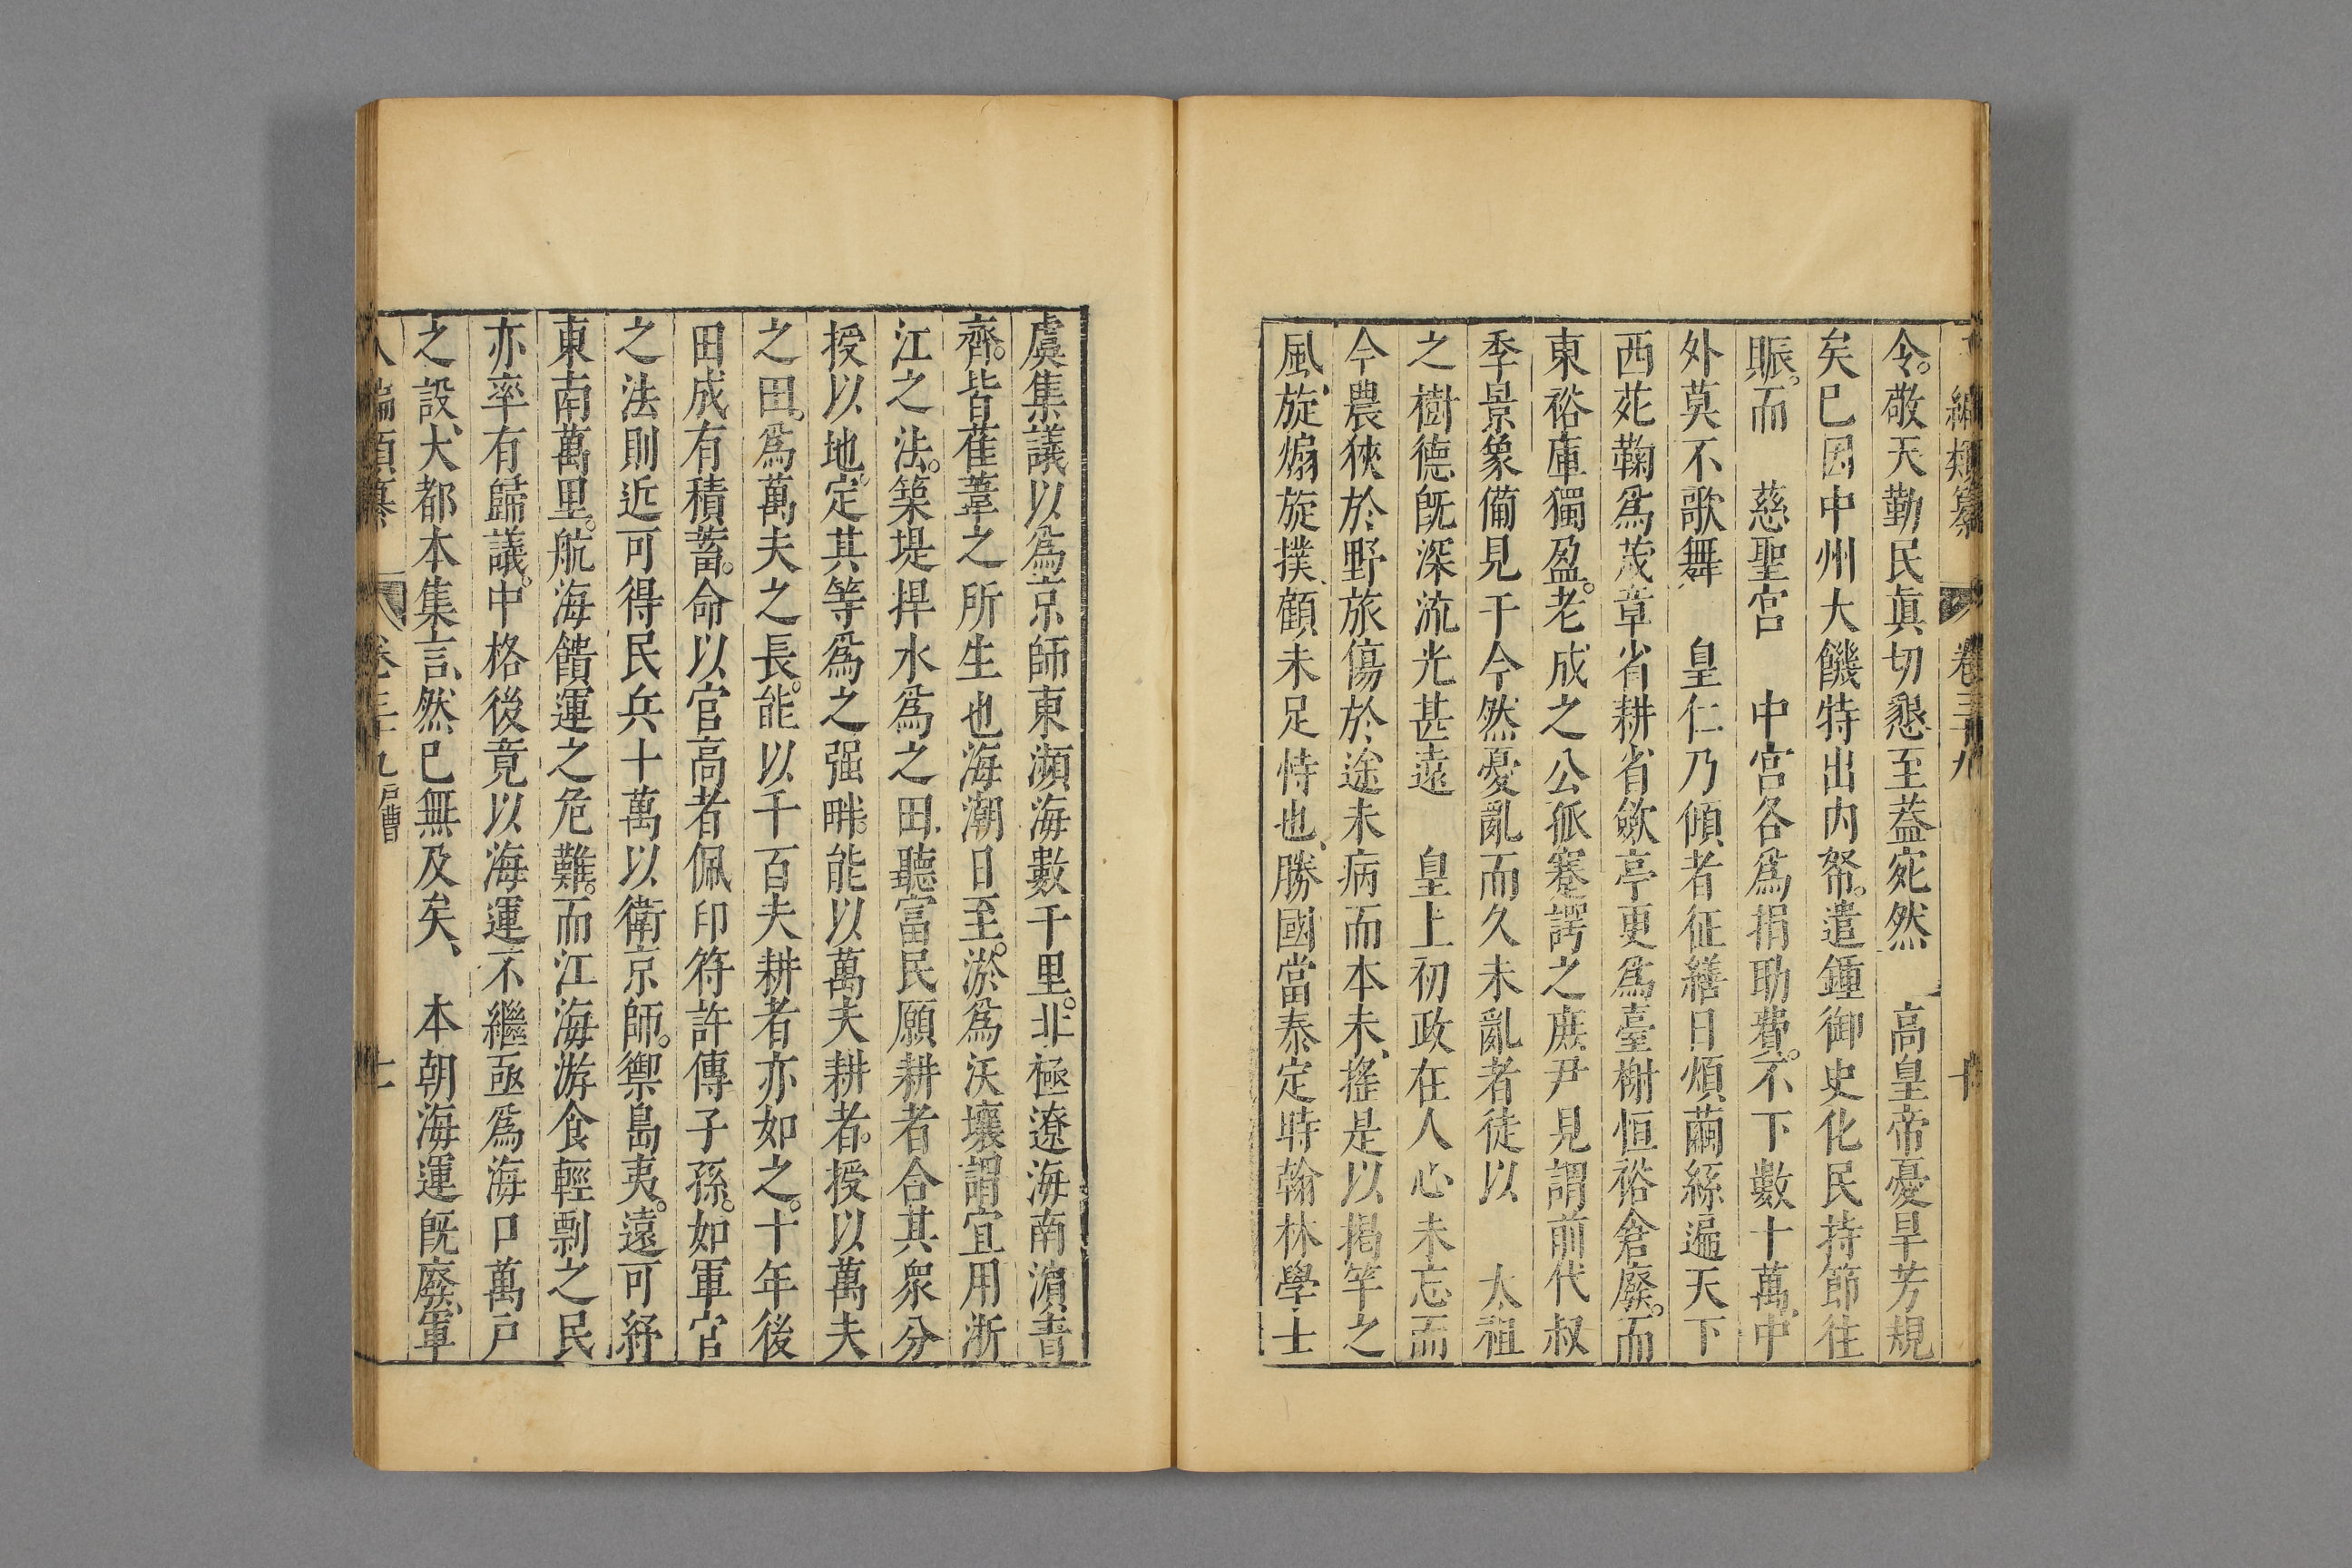 編類纂 卷三十九 十
令。敬天勤民眞切懇至葢宛然 高皇帝憂旱芳規
矣巳因中州大饑特出内帑。遣鍾御史化民持節往
賑。而 慈聖宮 中宮各爲捐助費。不下數十萬、中
外莫不歌舞 皇仁乃傾者征繕日煩繭絲遍天下
西苑鞠爲茂草省耕省斂亭更爲臺榭恒裕倉廢。而
東裕庫獨盈。老成之公孤蹇諤之庶尹見謂前代叔
季景象備見于今然憂亂而久未亂者徒以 太祖
之樹德旣深流光甚遠 皇上初政在人心未忘而
今農狹於野旅傷於途未病而本未、搖是以揭竿之
風、旋煽旋撲、顧未足恃也、勝國當泰定時翰林學士
虞集議以爲京師東瀕海數千里。北極遼海南濵青
齊。皆萑葦之所生也海潮日至。淤爲沃壤謂宜用浙
江之法。築堤捍水爲之田、聽富民願耕者合其衆分
授以地。定其等爲之强畔。能以萬夫耕者。授以萬夫
之田。爲萬夫之長。能以千百夫耕者亦如之。十年後
田成有積蓄。命以官高者佩印符許傳子孫。如軍官
之法則近可得民兵十萬以衛京師。禦島夷。遠可紓
東南萬里。航海饋運之危難。而江海游食輕剽之民
亦率有歸議。中格後竟以海運不繼亟爲海口萬戸
之設、大都本集言、然巳無及矣、 本朝海運旣廢、軍
八編類纂 卷三十九戸曹 十一